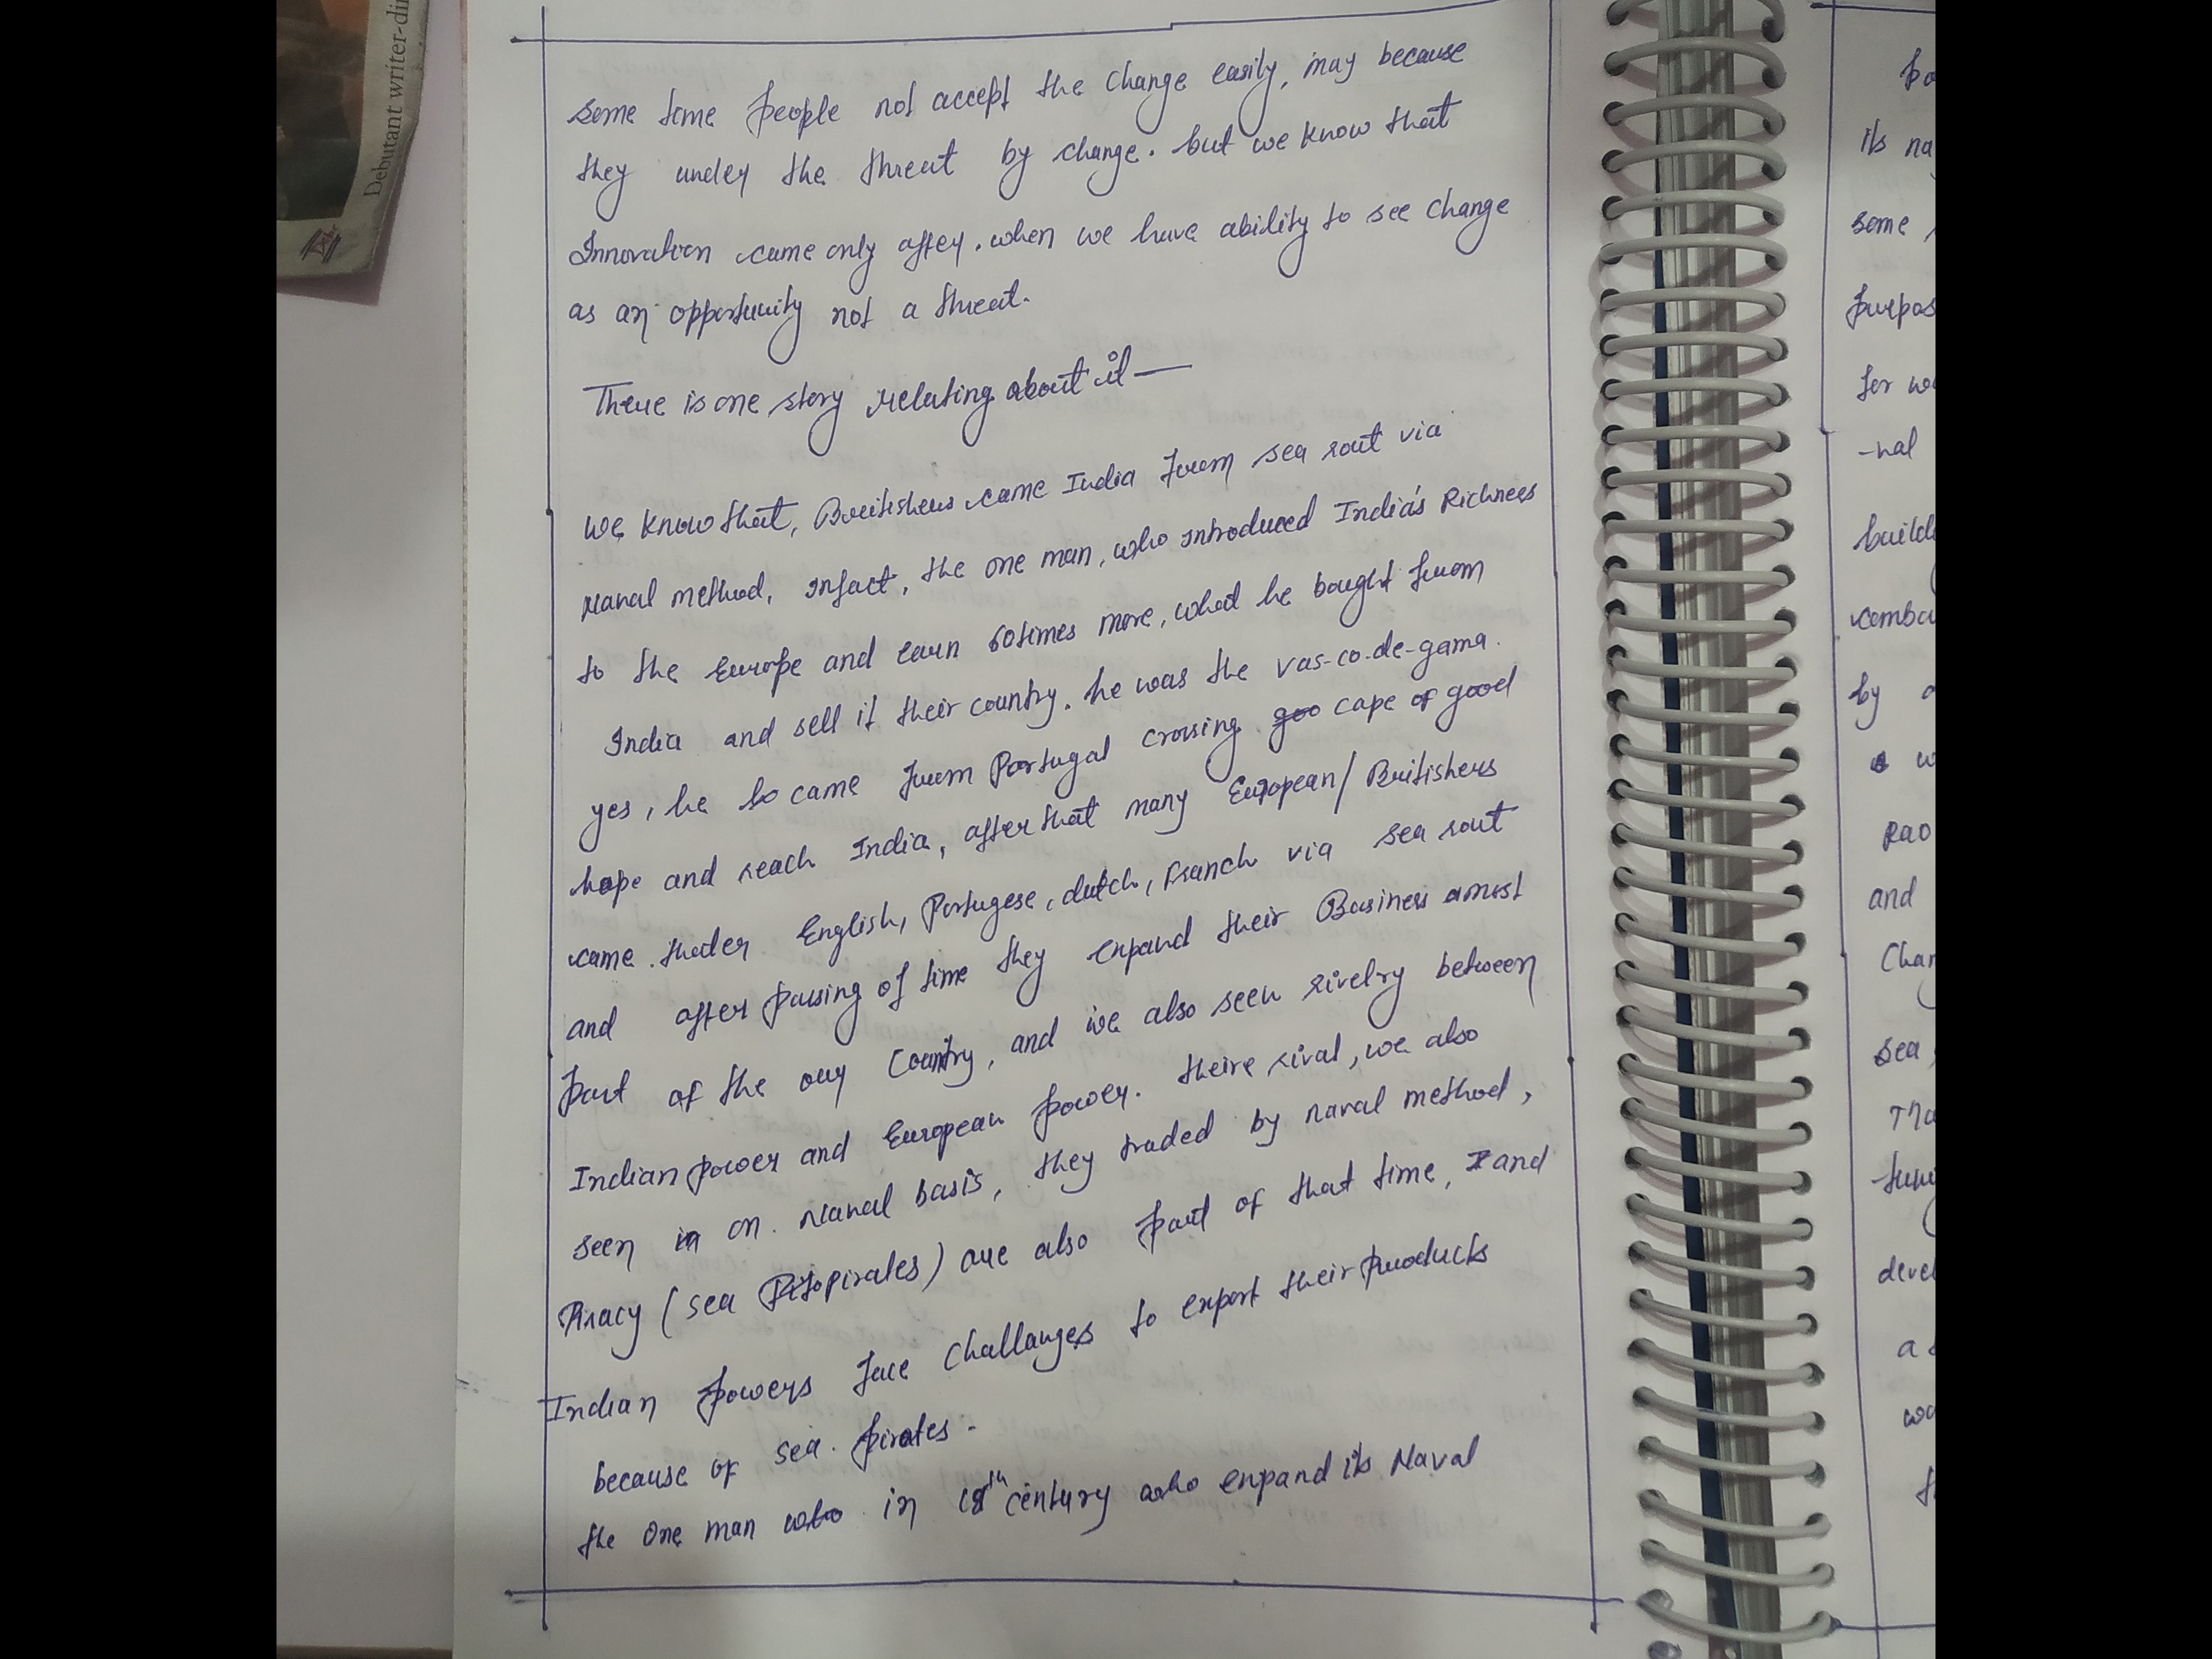 Debutant writer-di
some time people not accept the change easily, may because
they under the threat by change. but we know that
Innovation came only after. when we have ability to see change
as an opportunity not a threat.
There is one story relating about it —
we know that, Britishers came India from sea rout via
Naval method, infact, the one man, who introduced India's Richness
to the Europe and earn 60times more, what he bought from
India and sell it their country. he was the vas-co-de-gama.
yes, he came from Portugal crossing goo cape of good
hope and reach India, after that many European/Britishers
came. English, Portugese, dutch, Franch via sea rout
and after passing of time they expand their Business amost
part of the our Country, and we also seen rivelry between
Indian power and European power. theire rival, we also
seen in on. Naval basis, they traded by naval method,
Piracy (sea pirates) are also part of that time, and
Indian powers face challanges to export their products
because of sea. pirates-
the one man who in 18th century who expand its Naval
po
its na
some
purpos
for wo
-nal
build
comba
by
w
Rao
and
Char
sea
-tuni
devel
a
wo